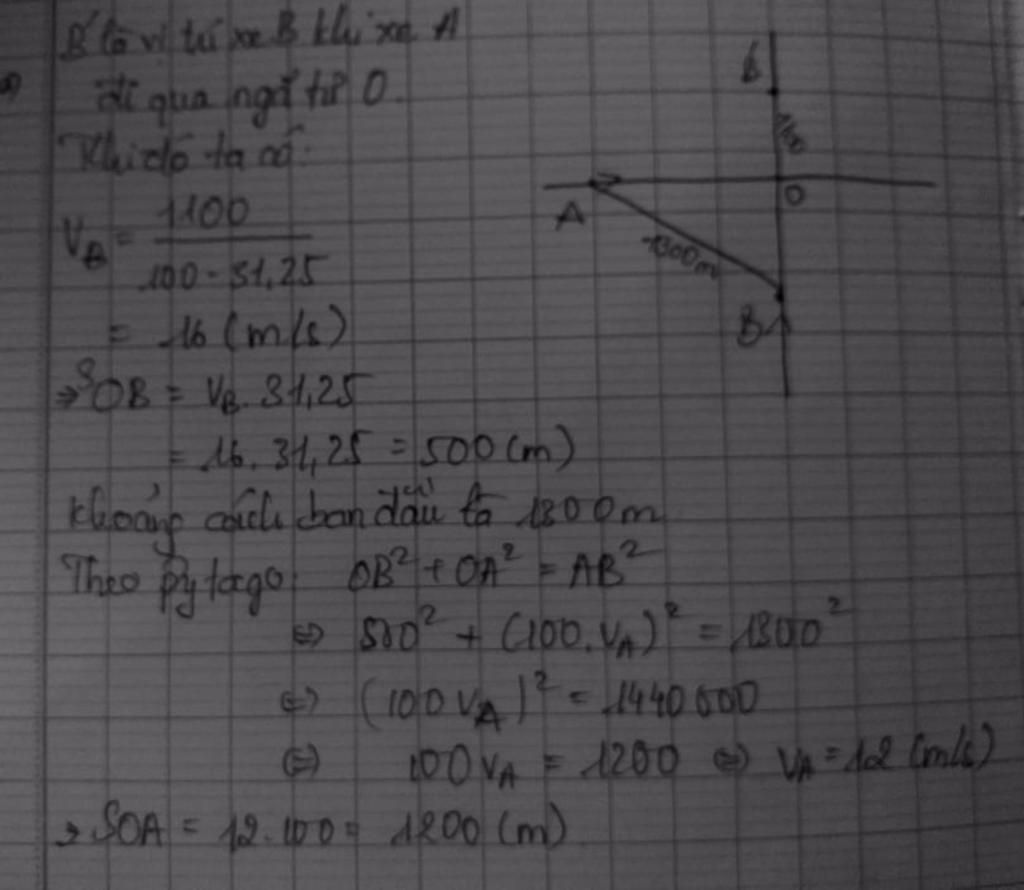 B' là vị trí xe B khi xe A
a)
đi qua ngã tư O.
Khi đó ta có:
V_B = 1100 / (100 - 31,25)
= 16 (m/s)
=> SOB = V_B. 31,25
= 16. 31,25 = 500 (m)
Khoảng cách ban đầu là 1300m
Theo pytago: OB² + OA² = AB²
<=> 500² + (100.V_A)² = 1300²
<=> (100V_A)² = 1440000
<=> 100V_A = 1200 <=> V_A = 12 (m/s)
=> SOA = 12.100 = 1200 (m)
A
O
1300m
B